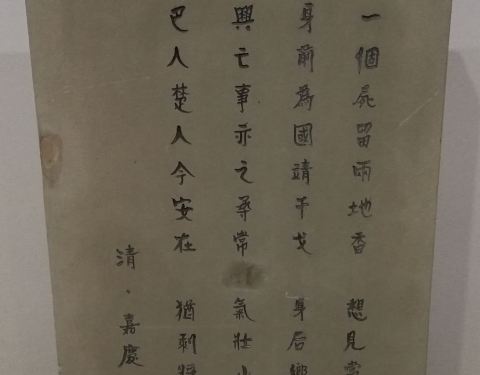 一個屍留兩地香 想見當
身前為國靖干戈 身后鄉
興亡事亦之尋常 氣壯山
巴人楚人今安在 猶剩將
清·嘉慶